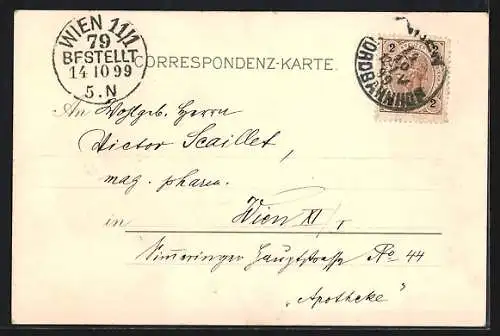 WIEN 11/1
79
BESTELLT
14 10 99
5.N
CORRESPONDENZ-KARTE.
WIEN
NORDBAHNHOF
2 2
2 2
An Wohlgeb. Herrn
Victor Scaillet,
mag. pharm.
in Wien XI/1
Simmeringer Hauptstrasse No 44
„Apotheke"